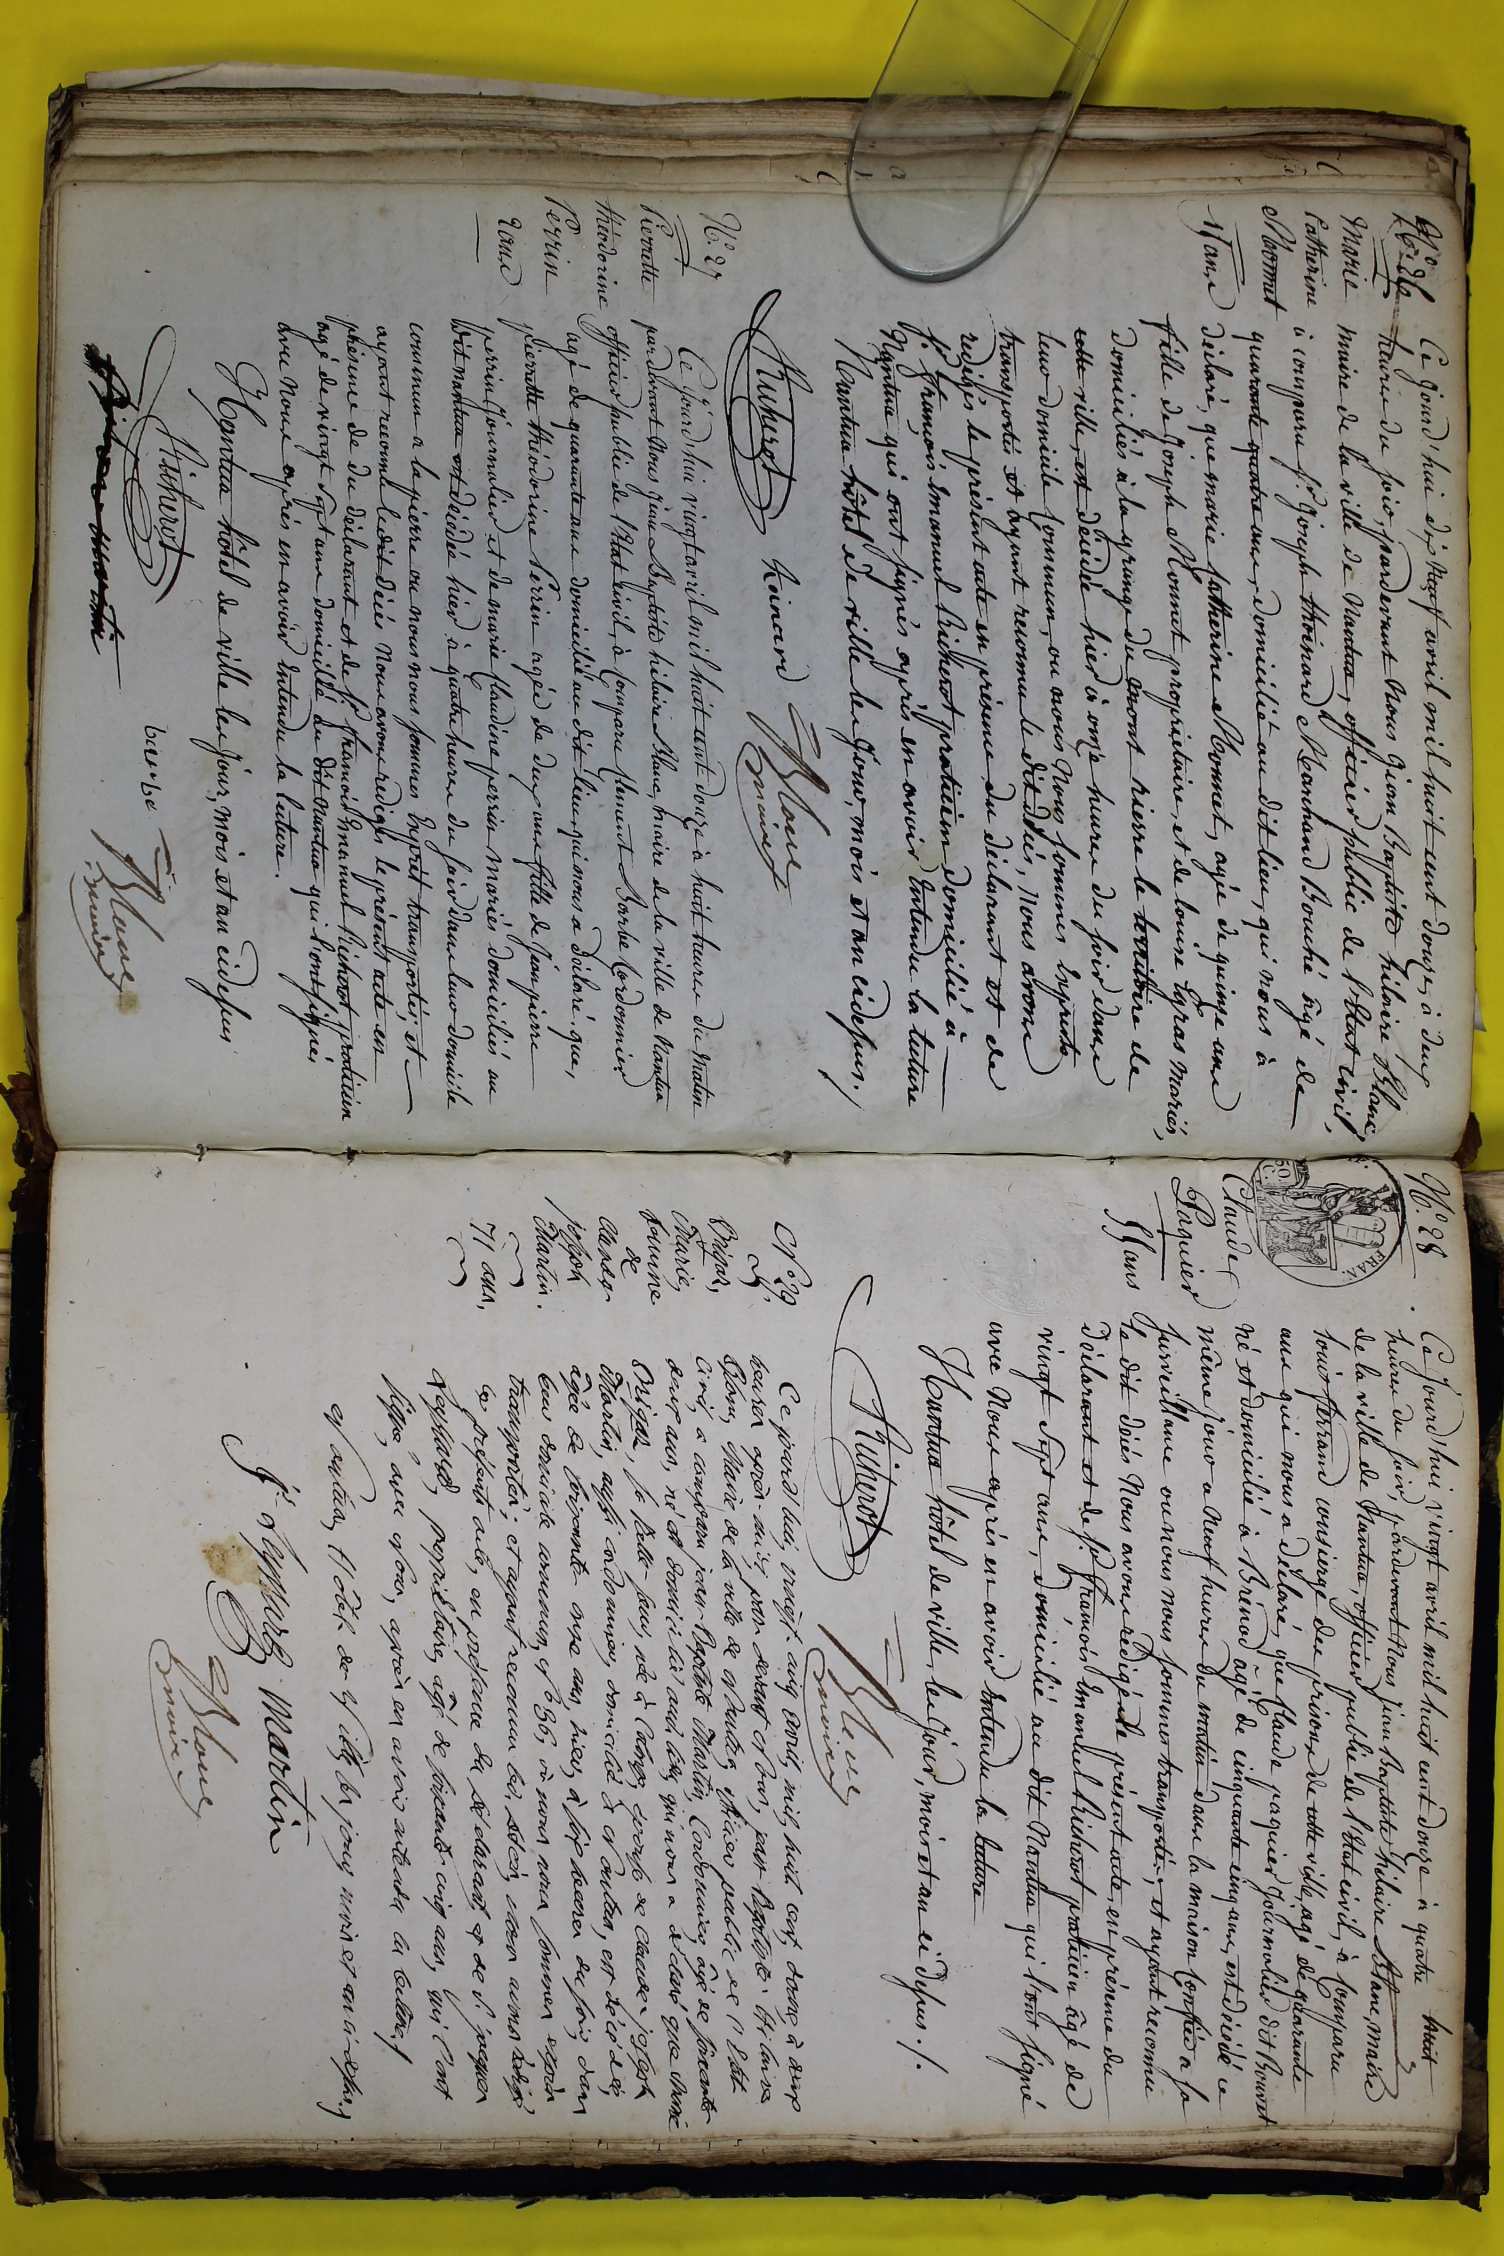 N.o 26
Marie
Catherine
Momet
15 ans
Ce Jourd'hui dix Neuf avril mil huit cent douze, à deux
heures du soir, pardevant Nous Jean Baptiste hilaire Blanc,
maire de la ville de Nantua, officier public de l'Etat Civil,
a comparu Sr. Joseph thoinard Marchand Bouché âgé de
quarante quatre ans, domicilié au dit lieu, qui nous à
déclaré, que marie Catherine Momet, agée de quinze ans
fille de Joseph Momet propriétaire, et de louise Legras mariés,
domiciliés à la grange du mont pierre le territoire de
cette ville, est décédée hier à onze heures du soir dans
leur domicile Commun, ou avons Nous sommes Exprès
transportés et ayant reconnu le dit décès, Nous avons
redigés le présent acte en présence du déclarant et de
Sr. francois Emanuel Richerot praticien domicilié à
Nantua qui ont signés après en avoir Entendu la lecture
Nantua hôtel de ville les Jour, mois et an cidessus./
Richerot Blanc
maire
N.o 27
Pierrette
théodorine
Perrin
2 ans
Ce Jourd'hui vingt avril mil huit cent douze à huit heures du matin
pardevant Nous Jean Baptiste hilaire Blanc, maire de la ville de Nantua
officier public de l'Etat Civil, à Comparu Clément Barbe Cordonnier
agé de quarante ans domicilié au dit lieu, qui nous a déclaré, que,
Pierrette théodorine Perrin agée de deux ans fille de Jean pierre
perrin Journalier et de marie Claudine perrin mariés domiciliés au
dit nantua est décédée hier à quatre heures du soir dans leur domicile
commun a la pierre ou nous nous sommes Exprès transportés, et
ayant reconnu ledit décès Nous avons redigés le présent acte en
présence de du déclarant et de Sr. francois Emanuel Richerot praticien
agé de vingt sept ans domicilié au dit Nantua qui l'ont signés
avec Nous après en avoir Entendu la lecture.
Nantua hôtel de ville les Jour, mois et an cidessus
Richerot barbe Blanc
maire
N.o 28
Claude
Paquier
55 ans
Ce Jourd'hui vingt avril mil huit cent douze à quatre huit
heures du soir, pardevant Nous jean baptiste hilaire Blanc, maire
de la ville de Nantua, officier public de l'Etat civil, à Comparu
louis ferrand consierge des prisons de cette ville, agé de quarante
ans qui nous a déclaré, que Claude paquier Journalier dit Bouvet
né et domicilié à Brénod agé de cinquante cinq ans, est décédé ce
même jour a Neuf heures du matin dans la maison Confiée a sa
surveillance ou nous nous sommes transportés, et ayant reconnu
le dit décès Nous avons rédigé le présent acte, en présence du
déclarant et de Sr. francois Emanuel Richerot praticien âgé de
vingt sept ans, domicilié au dit Nantua qui l'ont signé
avec Nous après en avoir Entendu la lecture
Nantua hôtel de ville, les Jour, mois et an ci dessus./.
Richerot Blanc
maire
N.o 29
Marie,
femme
de
Claude
joseph
Martin.
71 ans,
Ce jourd'hui, vingt cinq avril, mil huit cent douze, à deux
heures après midi, par devant Nous, jean Baptiste hilaire
Blanc, Maire de la ville de Nantua, officier public de l'Etat
Civil, a comparu jean-Baptiste Martin, Cordonnier, âgé de
ans, né et domicilié audit lieu, qui nous a déclaré que Marie
épouse de Claude joseph
Martin, aussi cordonnier, domiciliée à Nantua, est décédée,
âgée de soixante onze ans, hier, à six heures du soir, dans
leur domicile commun, N.o 36, où nous nous sommes exprès
transportés; et ayant reconnu led. décès, nous avons rédigé
le présent acte, en présence du déclarant, et de S.r jacques
propriétaire, âgé de soixante cinq ans, qui l'ont
signé, avec Nous, après en avoir entendu la lecture,
Nantua, Hôtel de Ville, les jour, mois et an ci-dessus./
Martin
Blanc
maire